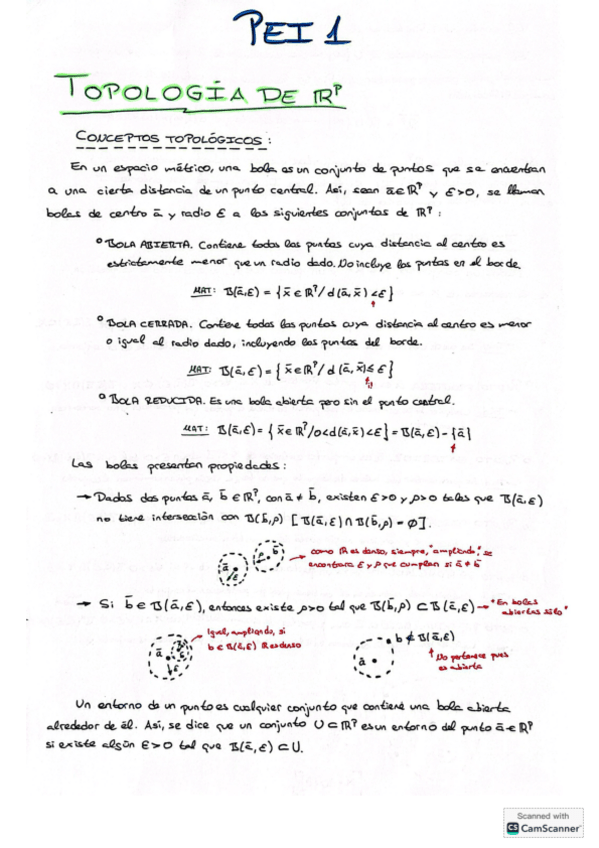 PEI 1
TOPOLOGÍA DE ℝᵖ
CONCEPTOS TOPOLÓGICOS:
En un espacio métrico, una bola es un conjunto de puntos que se encuentran
a una cierta distancia de un punto central. Así, sean ā∈ℝᵖ y ε>0, se llaman
bolas de centro ā y radio ε a los siguientes conjuntos de ℝᵖ:
° BOLA ABIERTA. Contiene todos los puntos cuya distancia al centro es
estrictamente menor que un radio dado. No incluye los puntos en el borde.
MAT: B(ā,ε) = {x̄ ∈ ℝᵖ / d(ā,x̄) < ε}
° BOLA CERRADA. Contiene todos los puntos cuya distancia al centro es menor
o igual al radio dado, incluyendo los puntos del borde.
MAT: B(ā,ε) = {x̄ ∈ ℝᵖ / d(ā,x̄) ≤ ε}
° BOLA REDUCIDA. Es una bola abierta pero sin el punto central.
MAT: B(ā,ε) = {x̄ ∈ ℝᵖ / 0<d(ā,x̄)<ε} = B(ā,ε) - {ā}
Las bolas presentan propiedades:
→ Dados dos puntos ā, b̄ ∈ ℝᵖ, con ā ≠ b̄, existen ε>0 y ρ>0 tales que B(ā,ε)
no tiene intersección con B(b̄,ρ) [B(ā,ε) ∩ B(b̄,ρ) = ∅].
ā ε
ρ b̄
→ como ℝ es denso, siempre, "ampliando", se
encontrara ε y ρ que cumplan si ā ≠ b̄
→ Si b̄ ∈ B(ā,ε), entonces existe ρ>0 tal que B(b̄,ρ) ⊂ B(ā,ε) → "En bolas
abiertas sólo"
ā ε
Igual, ampliando, si
b ∈ B(ā,ε) ℝ es denso
ā
b ∉ B(ā,ε)
↑ No pertenece pues
es abierta
Un entorno de un punto es cualquier conjunto que contiene una bola abierta
alrededor de él. Así, se dice que un conjunto U ⊂ ℝᵖ es un entorno del punto ā ∈ ℝᵖ
si existe algún ε>0 tal que B(ā,ε) ⊂ U.
Scanned with
CS CamScanner